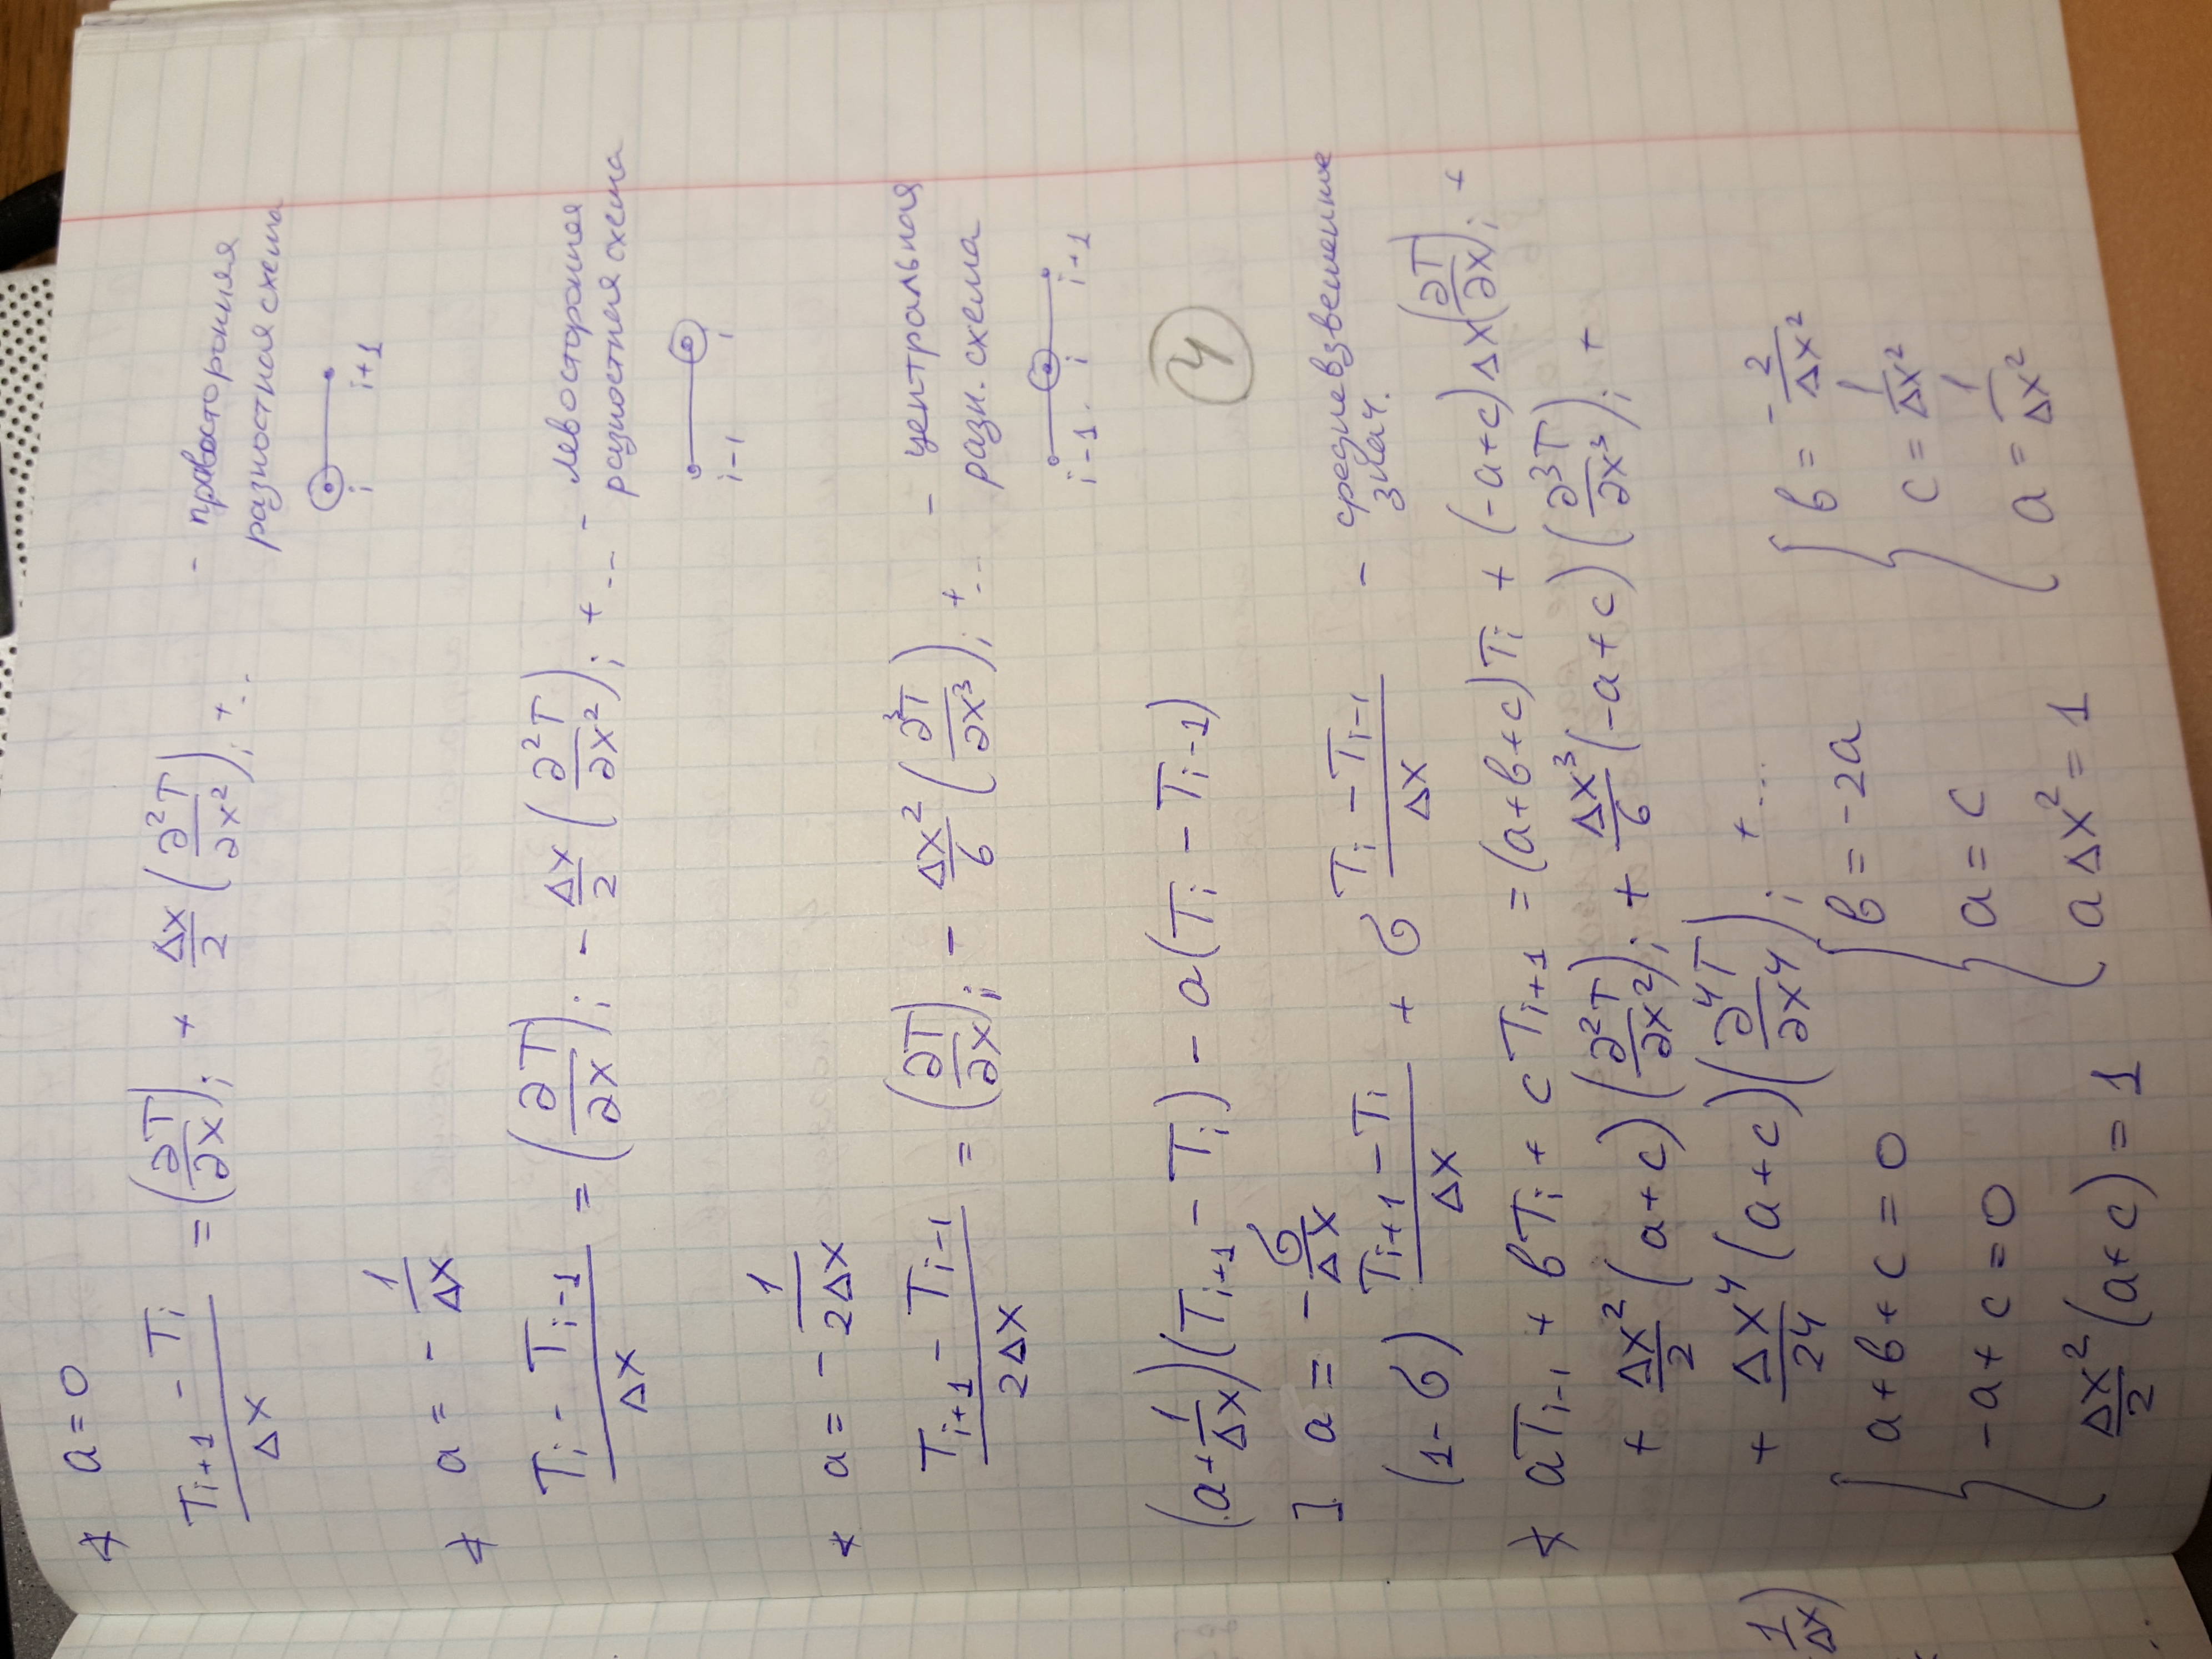 ∢ a = 0
(T_{i+1} - T_i)/Δx = (∂T/∂x)_i + Δx/2 (∂²T/∂x²)_i + ...
- правосторонняя
разностная схема
i i+1
∢ a = - 1/Δx
(T_i - T_{i-1})/Δx = (∂T/∂x)_i - Δx/2 (∂²T/∂x²)_i + ...
- левосторонняя
разностная схема
i-1 i
∢ a = - 1/(2Δx)
(T_{i+1} - T_{i-1})/(2Δx) = (∂T/∂x)_i - Δx²/6 (∂³T/∂x³)_i + ...
- центральная
разн. схема
i-1 i i+1
(a + 1/Δx)(T_{i+1} - T_i) - a(T_i - T_{i-1})
4
] a = - σ/Δx
(1-σ) (T_{i+1} - T_i)/Δx + σ (T_i - T_{i-1})/Δx
- средневзвешенное
знач.
∢ aT_{i-1} + bT_i + cT_{i+1} = (a+b+c)T_i + (-a+c)Δx(∂T/∂x)_i +
+ Δx²/2 (a+c)(∂²T/∂x²)_i + Δx³/6 (-a+c)(∂³T/∂x³)_i +
+ Δx⁴/24 (a+c)(∂⁴T/∂x⁴)_i + ...
1/Δx)
a+b+c = 0
-a+c = 0
Δx²/2 (a+c) = 1
b = -2a
a = c
aΔx² = 1
b = - 2/Δx²
c = 1/Δx²
a = 1/Δx²